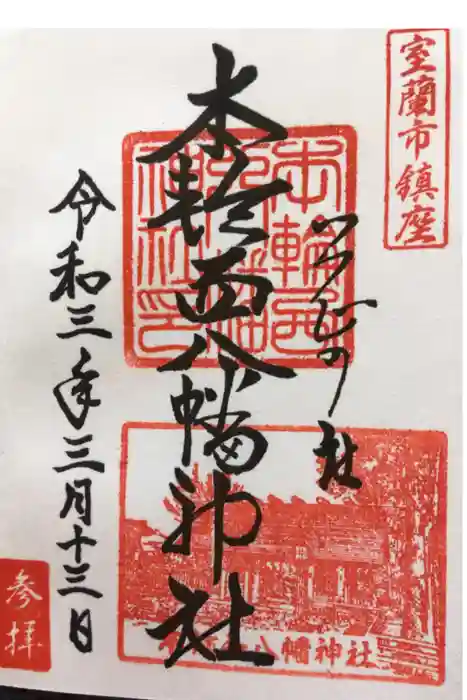 室蘭市鎮座
つつじの社
本輪西八幡神社
本輪西
八幡
神社印
八幡神社
令和三年三月十三日
参拝